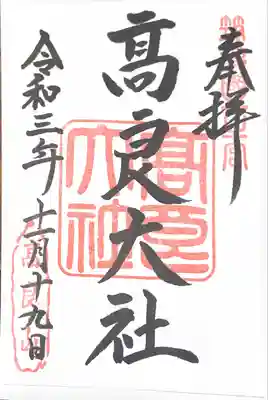 奉拝
髙良大社
令和三年十二月十九日
髙良大社